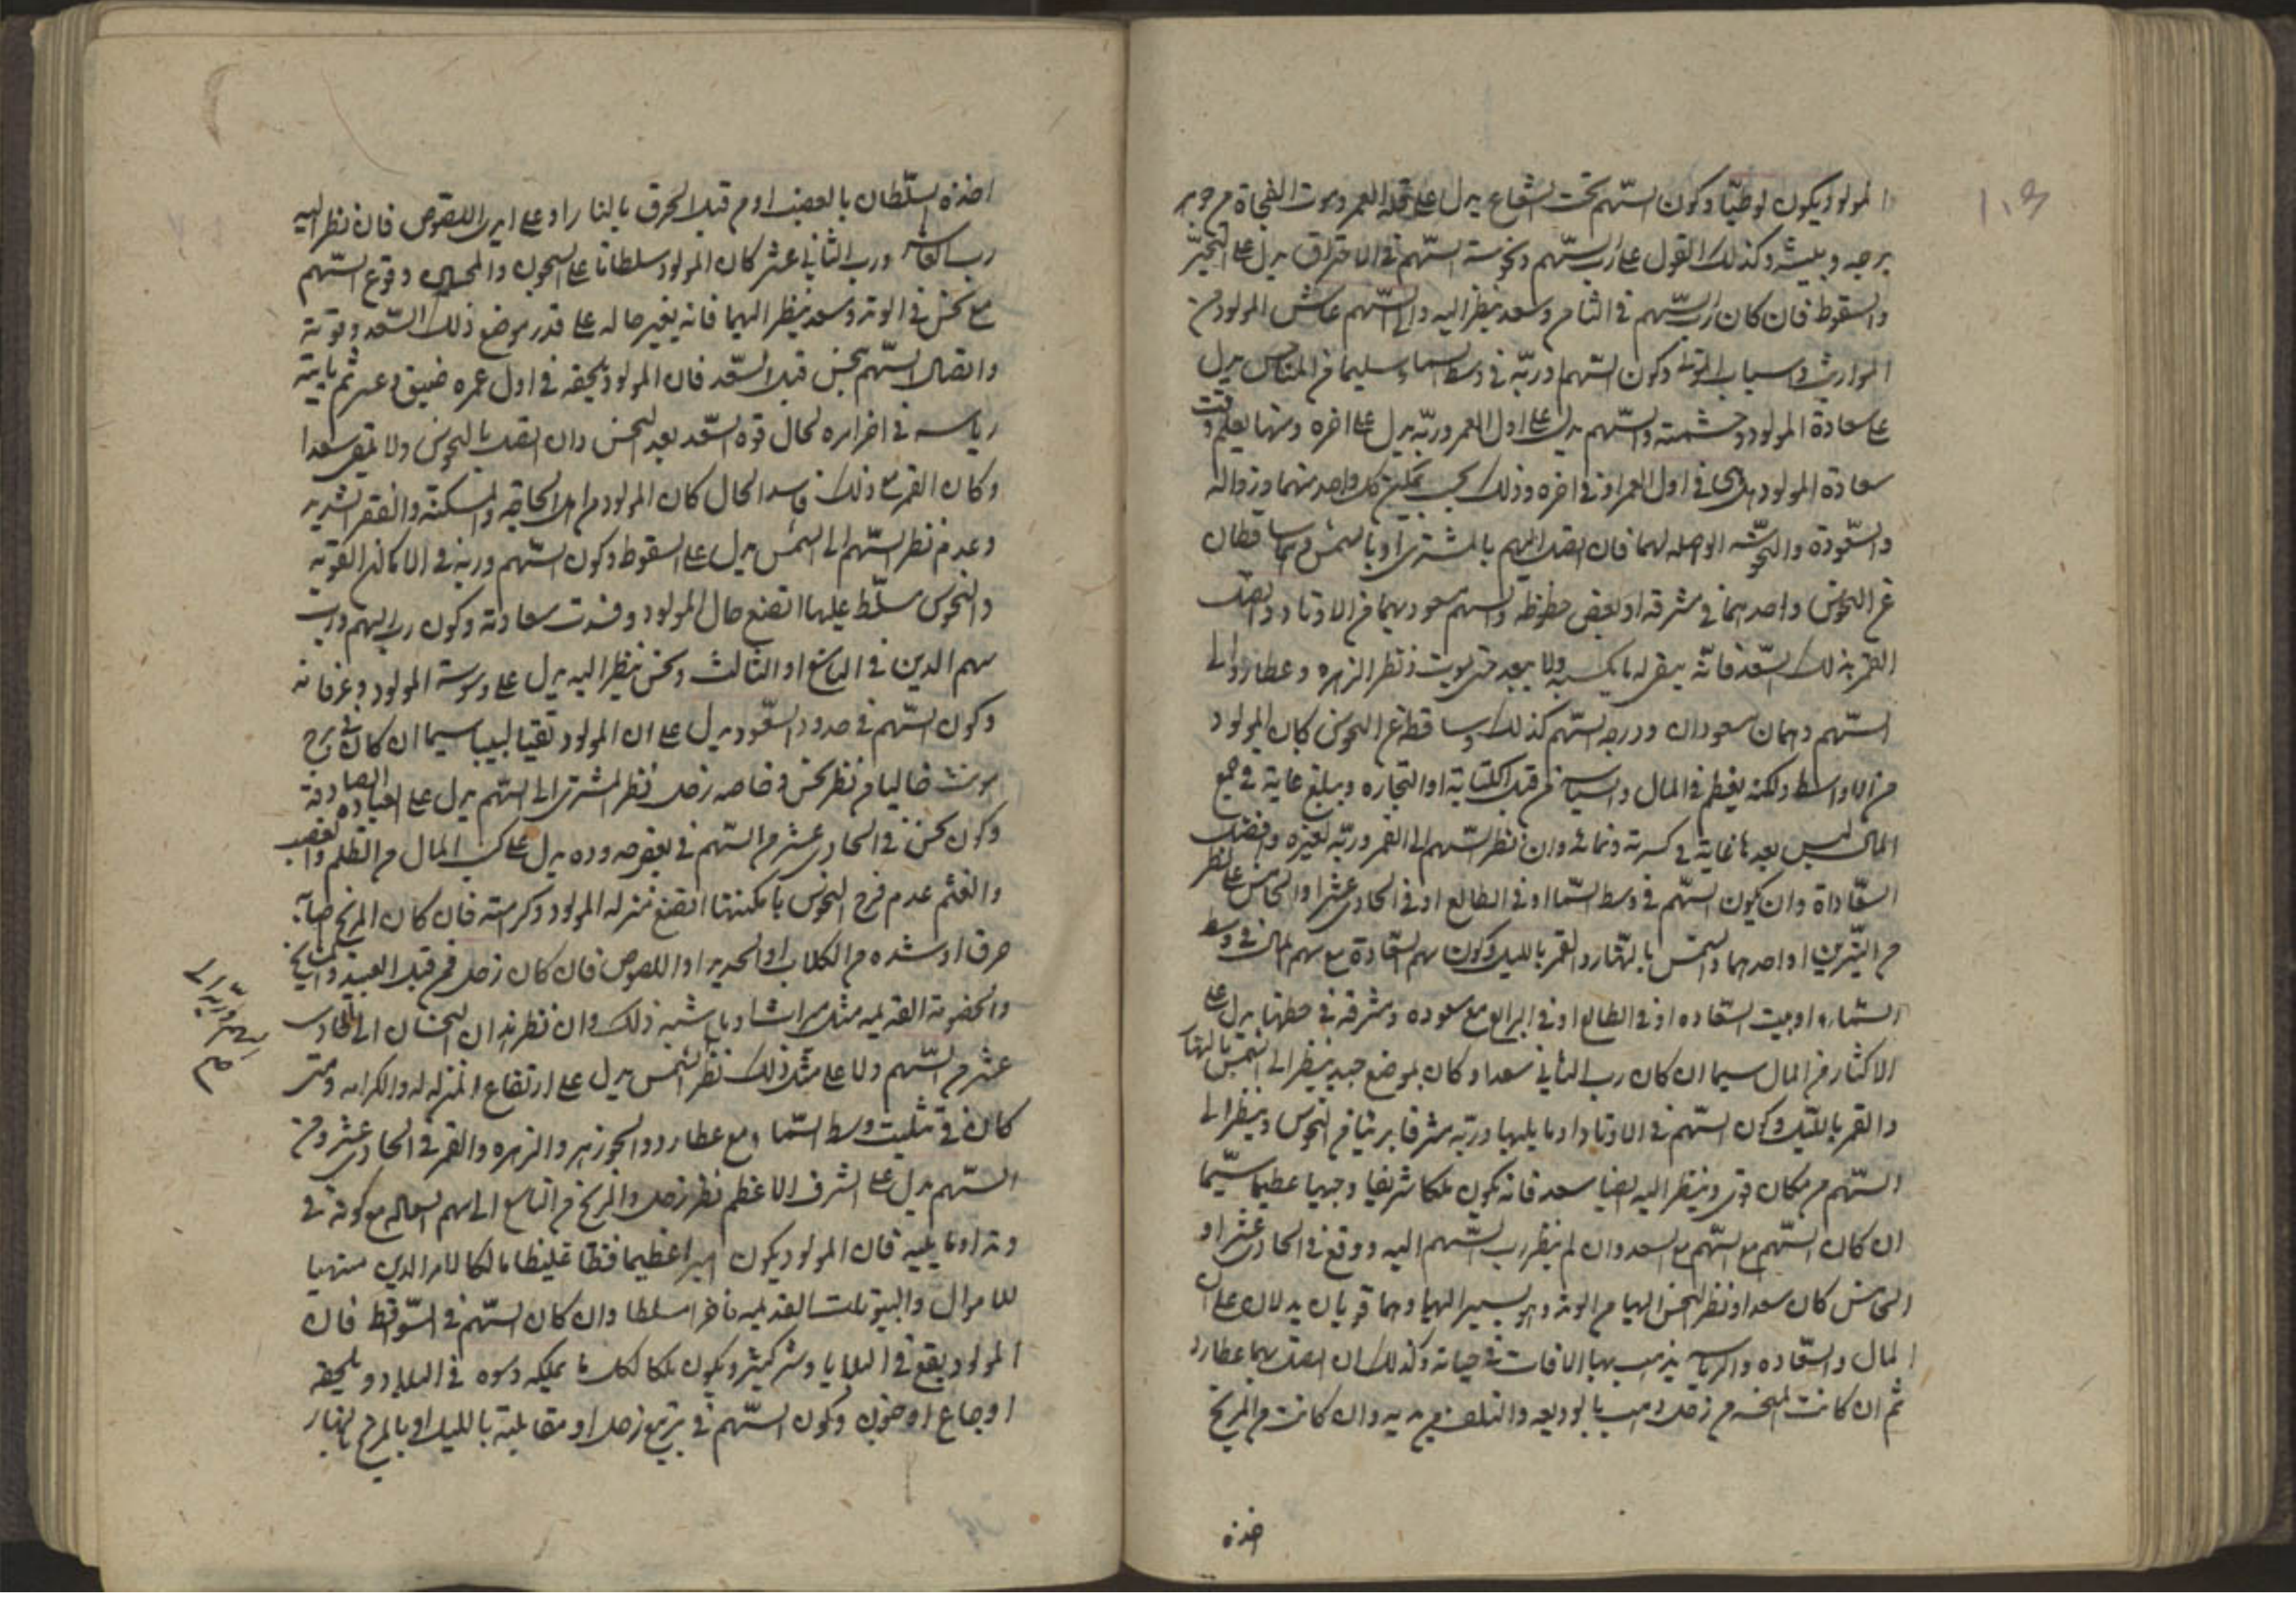 المولود يكون لوطيا وكون السهم تحت الشعاع يدل على قلة العمر وموت الفجاة من
وكذلك القول على رب السهم ونحوسة السهم في الاحتراق يدل على
والسقوط فان كان رب السهم في الثامن وسعد ينظر اليه والى السهم عاش المولود من
المواريث واسباب الموتى وكون السهم وربه في وسط السماء سليما من المناحس يدل
على سعادة المولود وحشمته والسهم يدل على اول العمر وربه يدل على اخره ومنها يعلم وقت
سعادة المولود هل هي في اول العمر او في اخره وذلك بحسب تمكين كل واحد منهما وزواله
والسعودة والنحوسة الواصله لهما فان اتصل السهم بالمشترى او بالشمس وهما ساقطان
عن النحوس واحدهما في شرفه او بعض حظوظه والسهم مسعود بهما من الاوتاد واتصل
القمر بذلك السعد فانه يبقى له ما يكسبه ولا يبعد حتى يموت نظر الزهره وعطارد الى
السهم وهما مسعودان ودرجة السهم كذلك وساقطة عن النحوس كان المولود
من الاواسط ولكنه يعظم في المال من قبل الكتابة او التجاره ويبلغ غاية في جمع
المال ليس بعدها غاية في كسرته ونمائه وان نظر السهم الى القمر وربه لغيره وافضل
السعادة وان يكون السهم في وسط السما او في الطالع او في الحادى عشر او الخامس على نظر
من النيرين او احدهما والشمس بالنهار والقمر بالليل وكون سهم السعادة مع سهم المال في وسط
السماء او بيت السعاده او في الطالع او في الرابع مع سعوده ومشرقه في حظهما يدل على
الاكثار من المال سيما ان كان رب الثاني سعدا وكان بموضع جيد ينظر الى الشمس بالنهار
والقمر بالليل وكون السهم في الاوتاد او ما يليها وربه مشرقا بريئا من النحوس وينظر الى
السهم من مكان قوى وينظر اليه ايضا سعد فانه يكون ملكا شريفا وجيها عظيما سيما
ان كان السهم مع السهم مع السعد وان لم ينظر رب السهم اليه ووقع في الحادى عشر او
الخامس كان سعدا ونظر النحس اليها من الوتد وهو يسير اليها وهما قويان يدلان على ان
المال والسعاده والرياسه يذهب بها الافات في حياته وكذلك ان اتصل بهما عطارد
ثم ان كانت المنحسه من زحل ذهب بالوديعه والتلف من يديه وان كانت من المريخ
اخذه
اخذه السلطان بالغصب او من قبل الحرق بالنار او على ايدى اللصوص فان نظر اليه
ورب الثاني عشر كان المولود سلطانا على السجون والمحابس وقوع السهم
مع نحس في الوتد وسعد ينظر اليهما فانه يغير حاله على قدر موضع ذلك السعد وقوته
واتصال السهم بنحس قبل السعد فان المولود يلحقه في اول عمره ضيق وعسر ثم ياتيه
رياسه في اخر امره لحال قوة السعد بعد النحس وان اتصل بالنحوس ولا يلقى سعدا
وكان القمر مع ذلك فاسد الحال كان المولود من اهل الحاجة والمسكنة والفقر الشديد
وعدم نظر السهم الى الشمس يدل على السقوط وكون السهم وربه في الاماكن القوية
والنحوس مسلط عليها اتضع حال المولود وفسدت سعادته وكون رب السهم ورب
سهم الدين في التاسع او الثالث ونحس ينظر اليه يدل على وسوسة المولود وعرفانه
وكون السهم في حدود السعود يدل على ان المولود تقيا لبيبا سيما ان كان في برج
مونث خاليا من نظر نحس وخاصه زحل نظر المشترى الى السهم يدل على العباده الصادقة
وكون نحس في الحادى عشر من السهم في بعض حدوده يدل على كسب المال من الظلم والغصب
والغشم عدم فرح النحوس بامكنتها اتضع منزله المولود وكرامته فان كان المريخ اصابه
حرق او شده من الكلاب او الحديد او اللصوص فان كان زحل فمن قبل العبيد والمشايخ
والخصومة القديمه مثل ميراث او ما شبه ذلك وان نظر هذان النحسان الى الحادى
عشر من السهم دلا على مثل ذلك نظر الشمس يدل على ارتفاع المنزله والكرامه ومتى
كان في تثليث وسط السما ومع عطارد والجوزهر والزهره والقمر في الحادى عشر من
السهم يدل على الشرف الاعظم نظر زحل والمريخ من التاسع الى سهم السعاده مع كونه في
وتد او ما يليه فان المولود يكون اميرا عظيما فظا غليظا مالكا لامر الدين منتهبا
للاموال والبيوتات القديمه فاخرا مسلطا وان كان السهم في السواقط فان
المولود يقع في البلايا وشر كثير ويكون ملكا لكل ما يملكه وسوه في البلاد ويلحقه
اوجاع او جنون وكون السهم في تربيع زحل او مقابلته بالليل او بالمريخ بالنهار